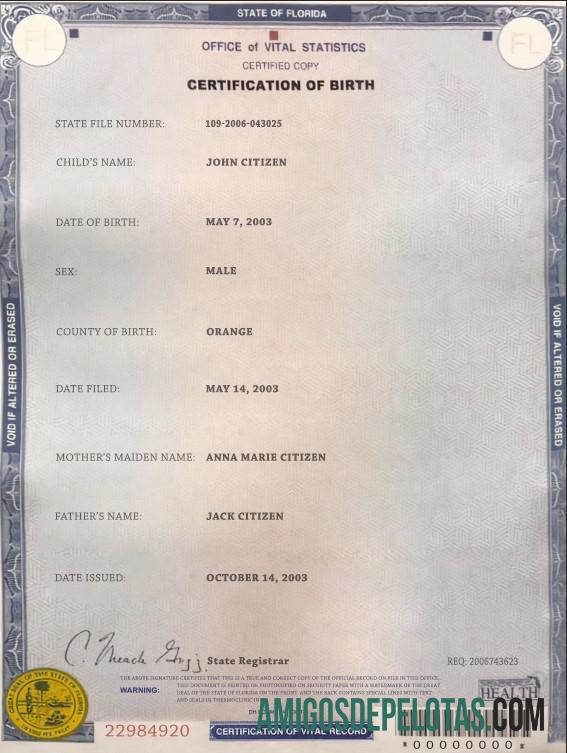 STATE OF FLORIDA
FL
FL
OFFICE of VITAL STATISTICS
CERTIFIED COPY
CERTIFICATION OF BIRTH
STATE FILE NUMBER: 109-2006-043025
CHILD'S NAME: JOHN CITIZEN
DATE OF BIRTH: MAY 7, 2003
SEX: MALE
COUNTY OF BIRTH: ORANGE
DATE FILED: MAY 14, 2003
MOTHER'S MAIDEN NAME: ANNA MARIE CITIZEN
FATHER'S NAME: JACK CITIZEN
DATE ISSUED: OCTOBER 14, 2003
VOID IF ALTERED OR ERASED
VOID IF ALTERED OR ERASED
C. Meade
State Registrar
REQ: 2006743623
THE ABOVE SIGNATURE CERTIFIES THAT THIS IS A TRUE AND CORRECT COPY OF THE OFFICIAL RECORD ON FILE IN THIS OFFICE.
WARNING: THIS DOCUMENT IS PRINTED OR PHOTOCOPIED ON SECURITY PAPER WITH A WATERMARK OF THE GREAT
SEAL OF THE STATE OF FLORIDA ON THE FRONT, AND THE BACK CONTAINS SPECIAL LINES WITH TEXT
AND SEALS IN THERMOCHROMIC
HEALTH
AMIGOSDEPELOTAS.COM
22984920
CERTIFICATION OF VITAL RECORD
*00000000*